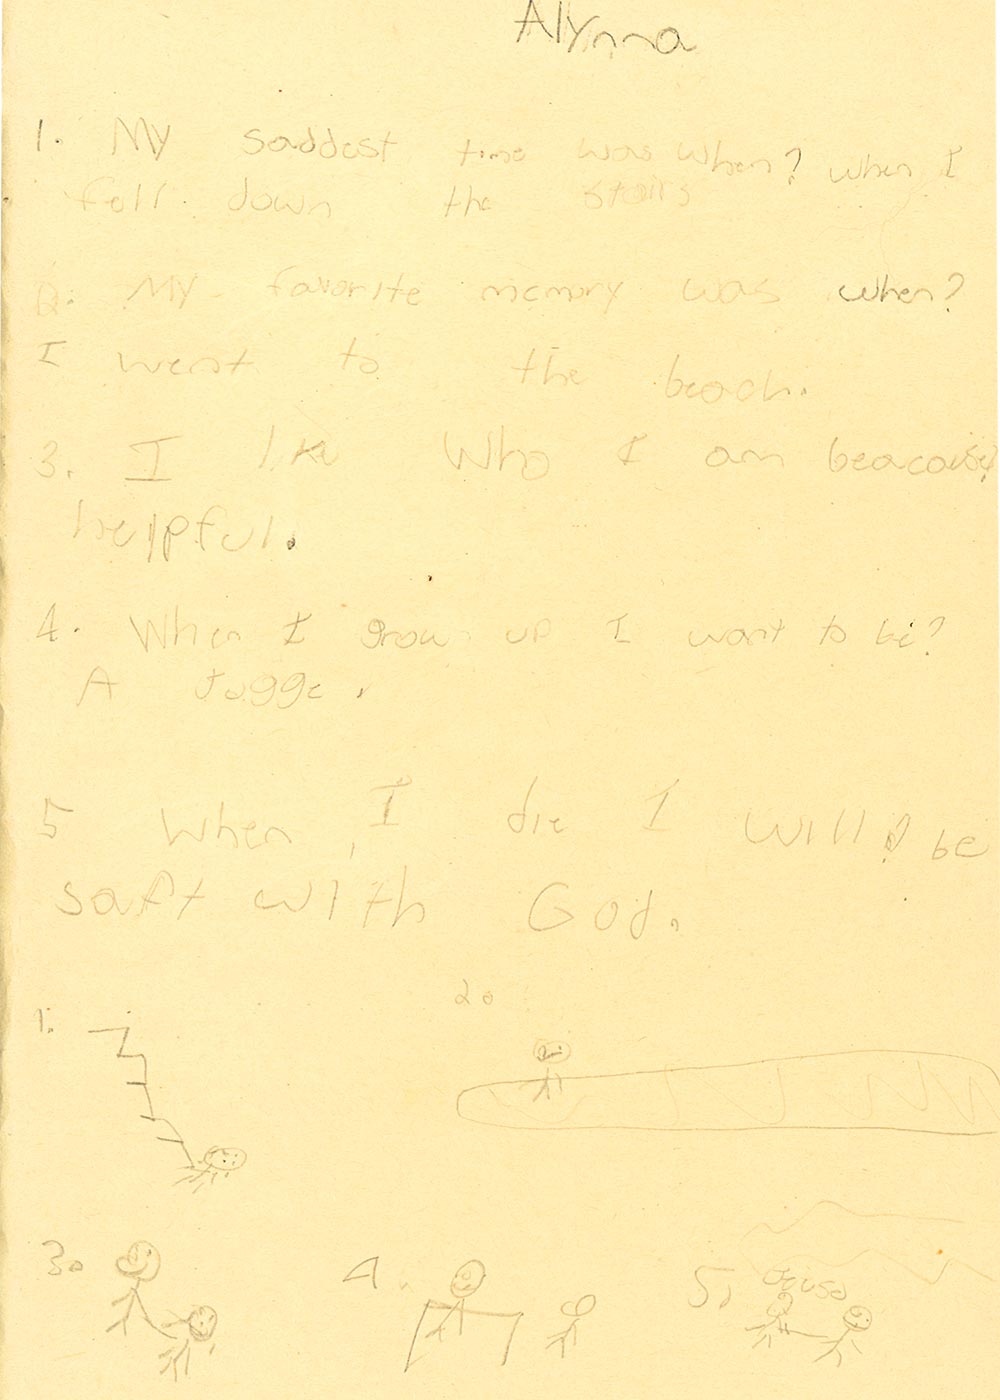 Alynna
1. My saddest time was when? when I
fell down the stairs
2. My favorite memory was when?
I went to the beach.
3. I like Who I am beacause
helpful.
4. When I grow up I want to be?
A Jugge.
5 When I die I will? be
saft with God.
1.
2.
3.
4.
5.